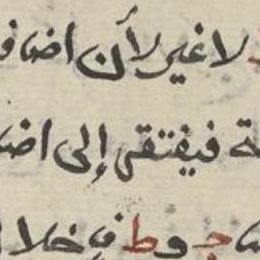 لا غير لأن اضاف
ة فيفتقر إلى اضا
جـ و ط في خلا